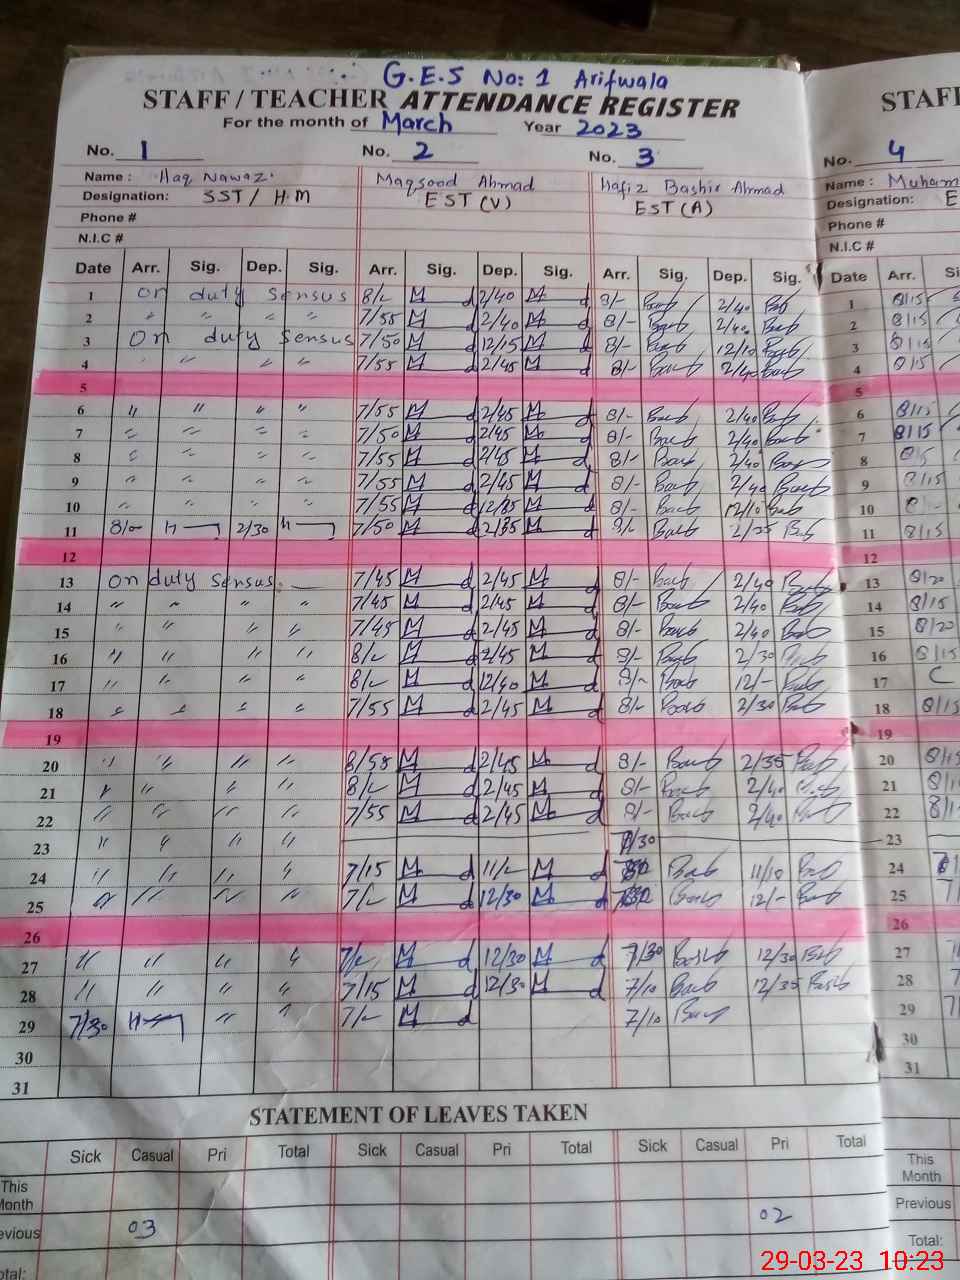 G.E.S No: 1 Arifwala
STAFF / TEACHER ATTENDANCE REGISTER STAFF
For the month of March Year 2023
No. 1 No. 2 No. 3 No. 4
Name : Haq Nawaz Maqsood Ahmad Hafiz Bashir Ahmad Name : Muham
Designation: SST / H.M EST (V) EST (A) Designation: E
Phone # Phone #
N.I.C # N.I.C #
Date Arr. Sig. Dep. Sig. Arr. Sig. Dep. Sig. Arr. Sig. Dep. Sig. Date Arr. Si
1 on duty Sensus 8/- 2/40 8/- 2/40 1 8/15
2 " " " " 7/55 2/40 8/- 2/40 2 8/15
3 On duty Sensus 7/50 12/15 8/- 12/10 3 8/15
4 " " " " 7/55 2/45 8/- 2/40 4 8/15
5 5
6 " " " " 7/55 2/45 8/- 2/40 6 8/15
7 " " " " 7/50 2/45 8/- 2/40 7 8/15
8 " " " " 7/55 2/45 8/- 2/40 8
9 " " " " 7/55 2/45 8/- 2/40 9 8/15
10 " " " " 7/55 8/- 12/10 10
11 8/- 2/30 7/50 2/35 8/- 2/35 11 8/15
12 12
13 on duty Sensus. 7/45 2/45 8/- 2/40 13 8/20
14 " " " " 7/45 2/45 8/- 2/40 14 8/15
15 " " " " 7/45 2/45 8/- 2/40 15 8/20
16 " " " " 8/- 2/45 8/- 2/30 16 8/15
17 " " " " 8/- 12/40 8/- 12/- 17 C
18 " " " " 7/55 2/45 8/- 2/30 18 8/15
19 19
20 " " " " 8/58 2/45 8/- 2/35 20 8/15
21 " " " " 8/- 2/45 8/- 2/40 21 8/1
22 " " " " 7/55 2/45 8/- 2/40 22 8/1
23 " " " " 7/30 23
24 " " " " 7/15 11/- 11/10 24
25 " " " " 7/- 12/30 12/- 25
26 26
27 " " " " 7/- 12/30 7/30 12/30 27
28 " " " " 7/15 12/30 7/10 12/35 28
29 7/30 " " 7/- 7/10 29
30 30
31 31
STATEMENT OF LEAVES TAKEN
Sick Casual Pri Total Sick Casual Pri Total Sick Casual Pri Total
This Month This Month
evious 03 02 Previous
otal: Total:
29-03-23 10:23